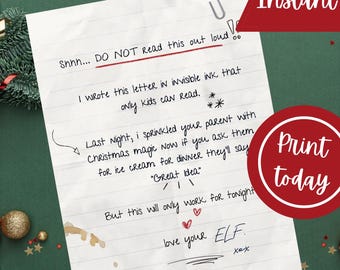 Instant
Shhh... DO NOT read this out loud!!
I wrote this letter in invisible ink that
only kids can read.
Last night, i sprinkled your parent with
Christmas magic now if you ask them
for ice cream for dinner they'll say
"Great Idea"
But this will only work for tonight
love your ELF.
xox
Print
today